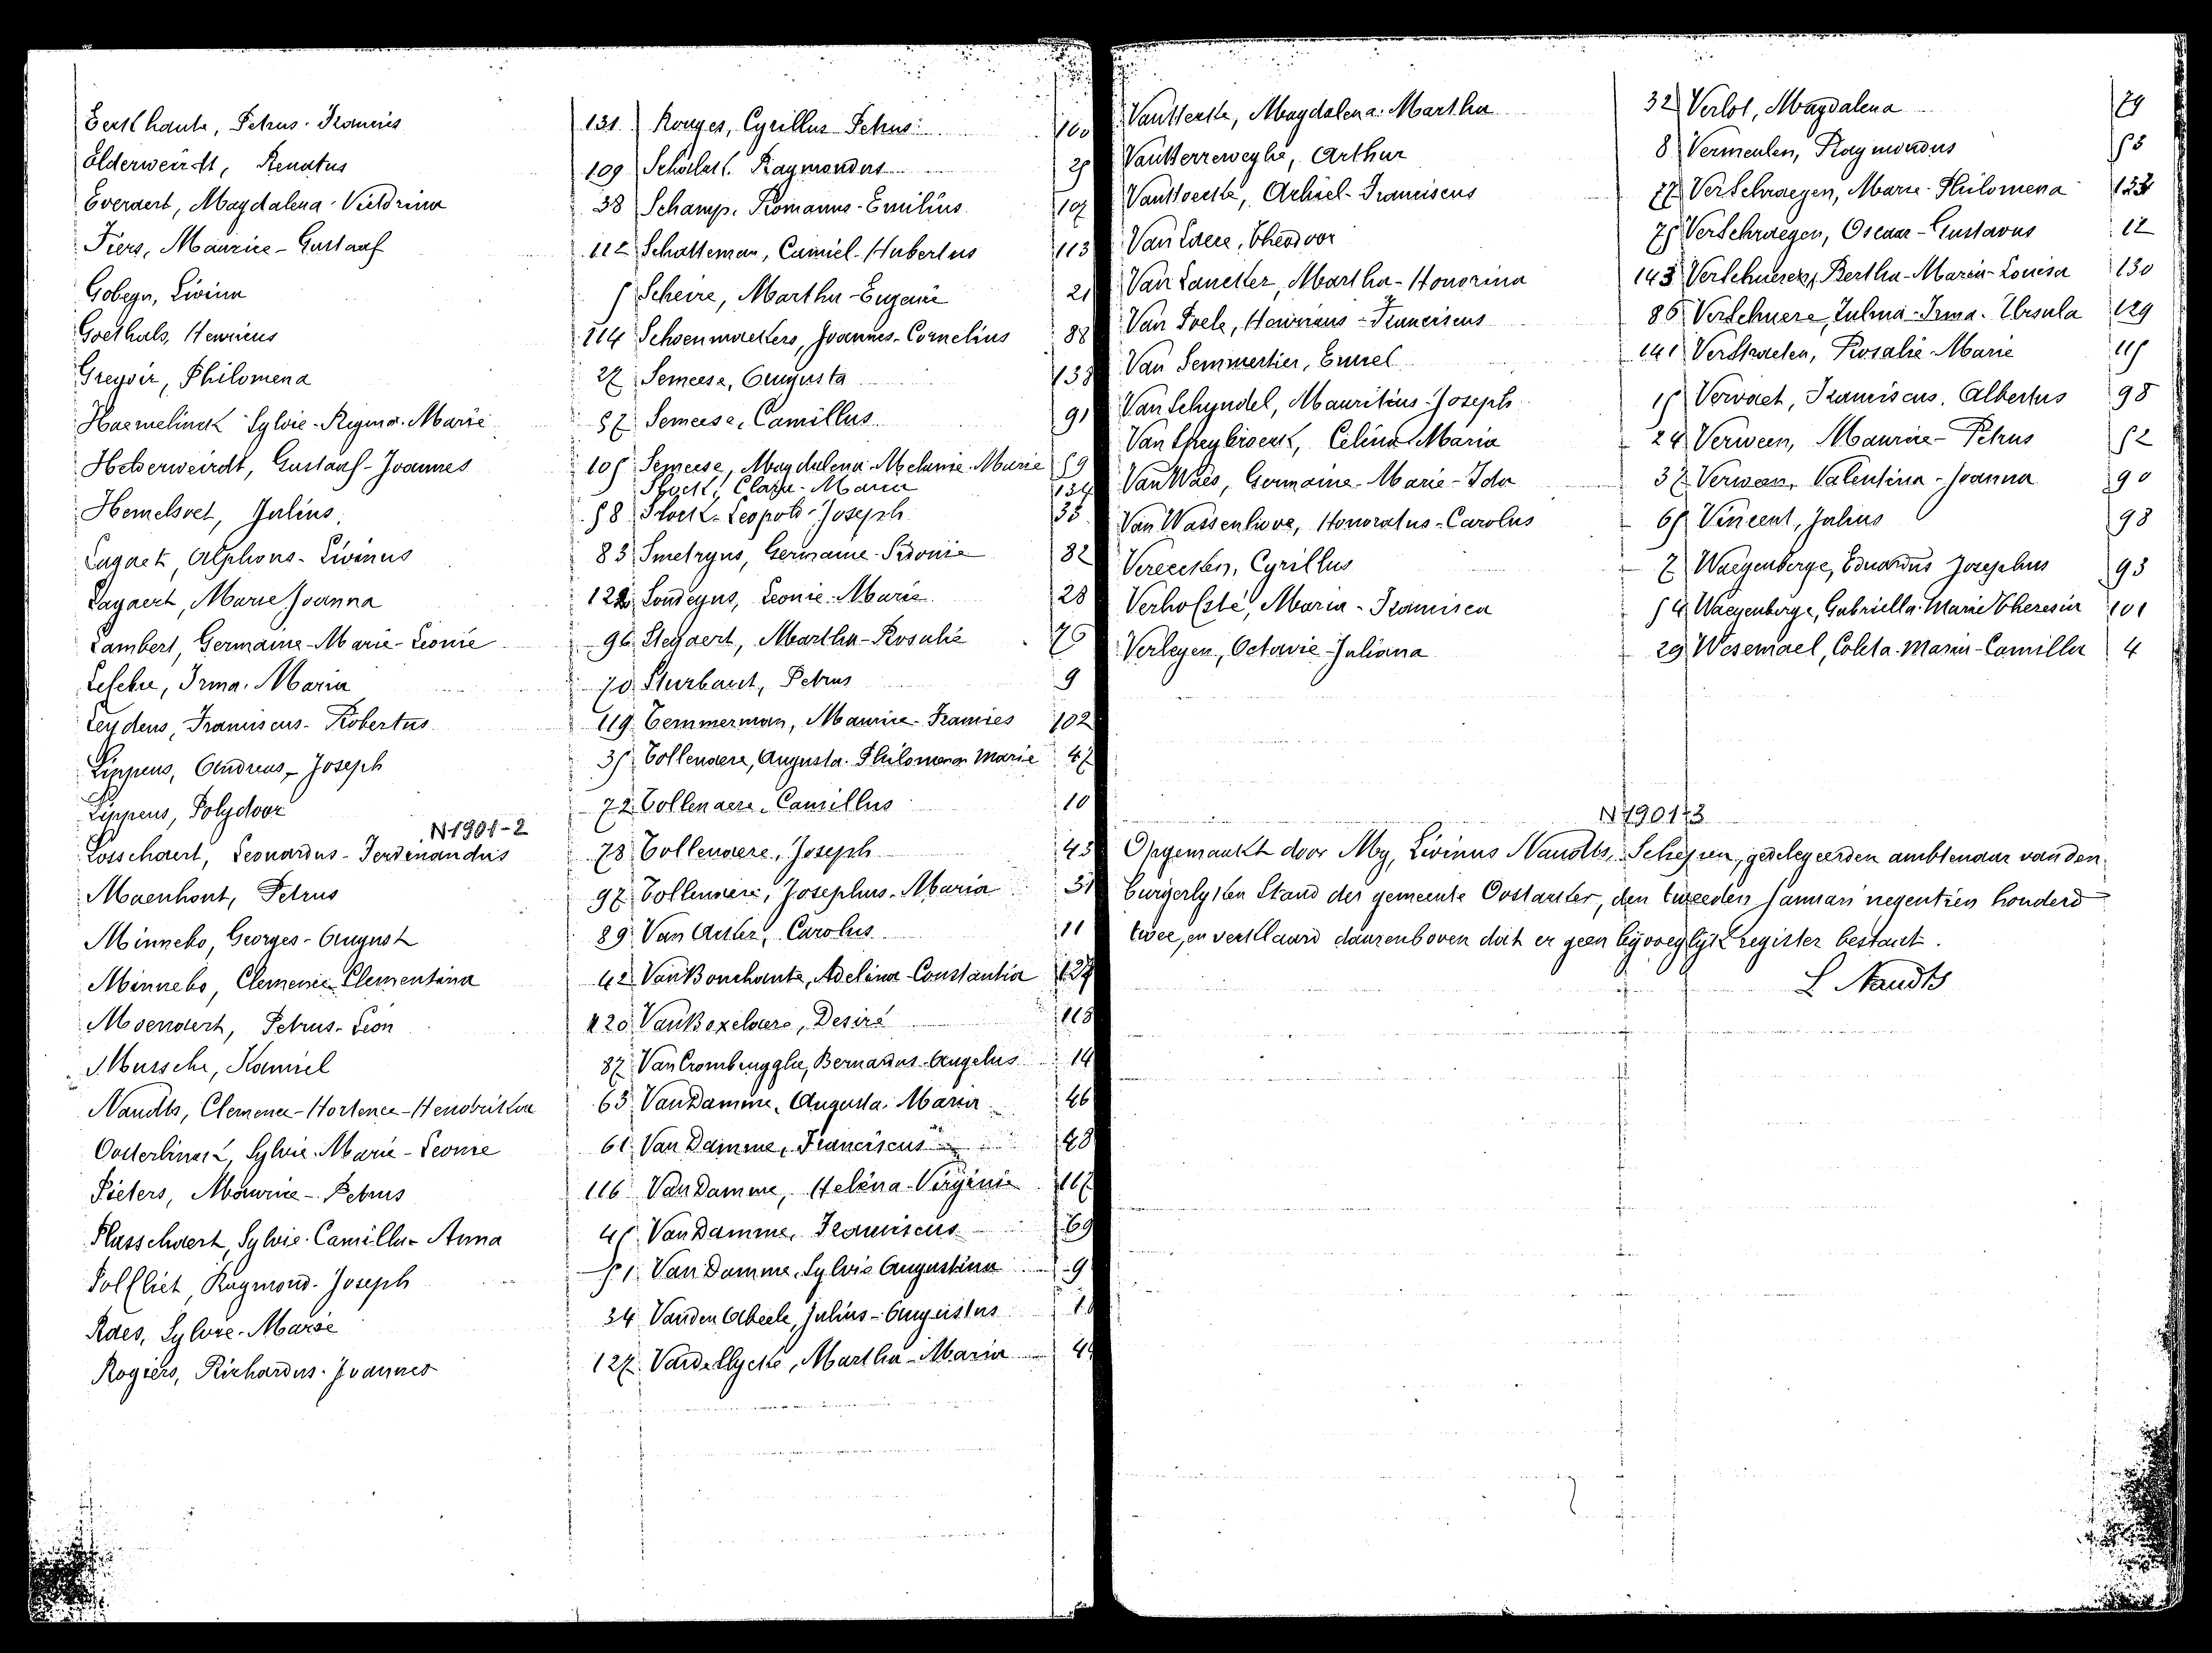 Eeckhaute, Petrus-Francies 131
Elderweirdt, Renatus 109
Everaert, Magdalena-Victorina 38
Fiers, Maurice-Gustaaf 112
Gobeyn, Livina 5
Goethals, Henricus 114
Greyoir, Philomena 27
Haemelinck Sylvie-Regina-Marie 57
Helderweirdt, Gustaaf-Joannes 105
Hemelsoet, Julius 58
Lagaet, Alphons-Livinus 83
Lagaert, Marie Joanna
Lambert, Germaine-Marie-Leonie 96
Lefebre, Irma-Maria 70
Leydens, Franciscus-Robertus 119
Lippens, Andreas-Joseph 35
Lippens, Polydoor 72
N 1901-2
Losschaert, Leonardus-Ferdinandus 78
Maenhout, Petrus 97
Minnebo, Georges-August 89
Minnebo, Clemencie Clementina 42
Moenaert, Petrus-Leon 120
Mussche, Kamiel 87
Naudts, Clemence-Hortence-Hendrika 63
Oosterlinck, Sylvie-Marie-Leonie 61
Pieters, Maurice-Petrus 116
Plasschaert, Sylvie-Camilla-Anna 45
Polfliet, Raymond-Joseph 51
Raes, Sylvie-Marie 34
Rogiers, Richardus-Joannes 127
Rouges, Cyrillus Petrus 100
Raymondus 25
Schamp, Romanus-Emilius 107
Schatteman, Camiel-Hubertus 113
Scheire, Martha-Eugenie 21
Schoenmaekers, Joannes-Cornelius 88
Semeese, Augusta 138
Semeese, Camillus 91
Semeese, Magdalena-Melanie-Marie 59
Slock, Clara-Maria 134
Slock-Leopold-Joseph 35
Smetryns, Germaine-Sidonie 82
Sondeyns, Leonie-Marie 28
Steyaert, Martha-Rosalie 76
Sturbaut, Petrus 9
Temmerman, Maurice-Francies 102
Tollenaere, Augusta-Philomena Marie 47
Tollenaere, Camillus 10
Tollenaere, Joseph 43
Tollenaere, Josephus-Maria 31
Van Acker, Carolus 11
Van Bouchaute, Adelina-Constantia
Van Boxelaere, Desiré 118
Van Crombrugghe, Bernardus-Angelus 14
Van Damme, Augusta-Maria 46
Van Damme, Franciscus 48
Van Damme, Helena-Virginie 117
Van Damme, Franciscus 69
Van Damme, Sylvie Augustina 9
Vanden Abeele, Julius-Augustus
Martha-Maria
Van Hecke, Magdalena-Martha 32
Van Herreweghe, Arthur 8
Van Hoecke, Achiel-Franciscus 77
Van Laere, Theodoor 75
Van Lancker, Martha-Honorina 143
Van Poele, Henricus-Franciscus 86
Van Semmertier, Emiel 141
Van Schyndel, Mauritius-Joseph 15
Van Speybroeck, Celina-Maria 24
Van Waes, Germaine-Marie-Ida 37
Van Wassenhove, Honoratus-Carolus 65
Vereecken, Cyrillus 7
Verholsté, Maria-Francisca 54
Verleyen, Octavie-Juliana 29
Verlot, Magdalena 79
Vermeulen, Raymondus 53
Verschraegen, Marie-Philomena
Verschraegen, Oscaar-Gustavus 12
Verschueren, Bertha-Maria-Louisa 130
Verschuere, Zulma-Irma-Ursula 129
Verstraeten, Rosalie-Marie 115
Vervaet, Franciscus-Albertus 98
Verween, Maurice-Petrus 52
Verween, Valentina-Joanna 90
Vincent, Julius 93
Waegenberge, Eduardus Josephus 93
Waegenberge, Gabriella-Marie Theresia 101
Wesemael, Coleta-Maria-Camilla 4
N 1901-3
Opgemaakt door My, Livinus Naudts, Schepen, gedelegeerden ambtenaar van den
burgerlyken Stand der gemeente Oostacker, den tweeden Januari negentien honderd
twee, en verklaard daarenboven dat er geen byvoeglyk register bestaat.
L Naudts